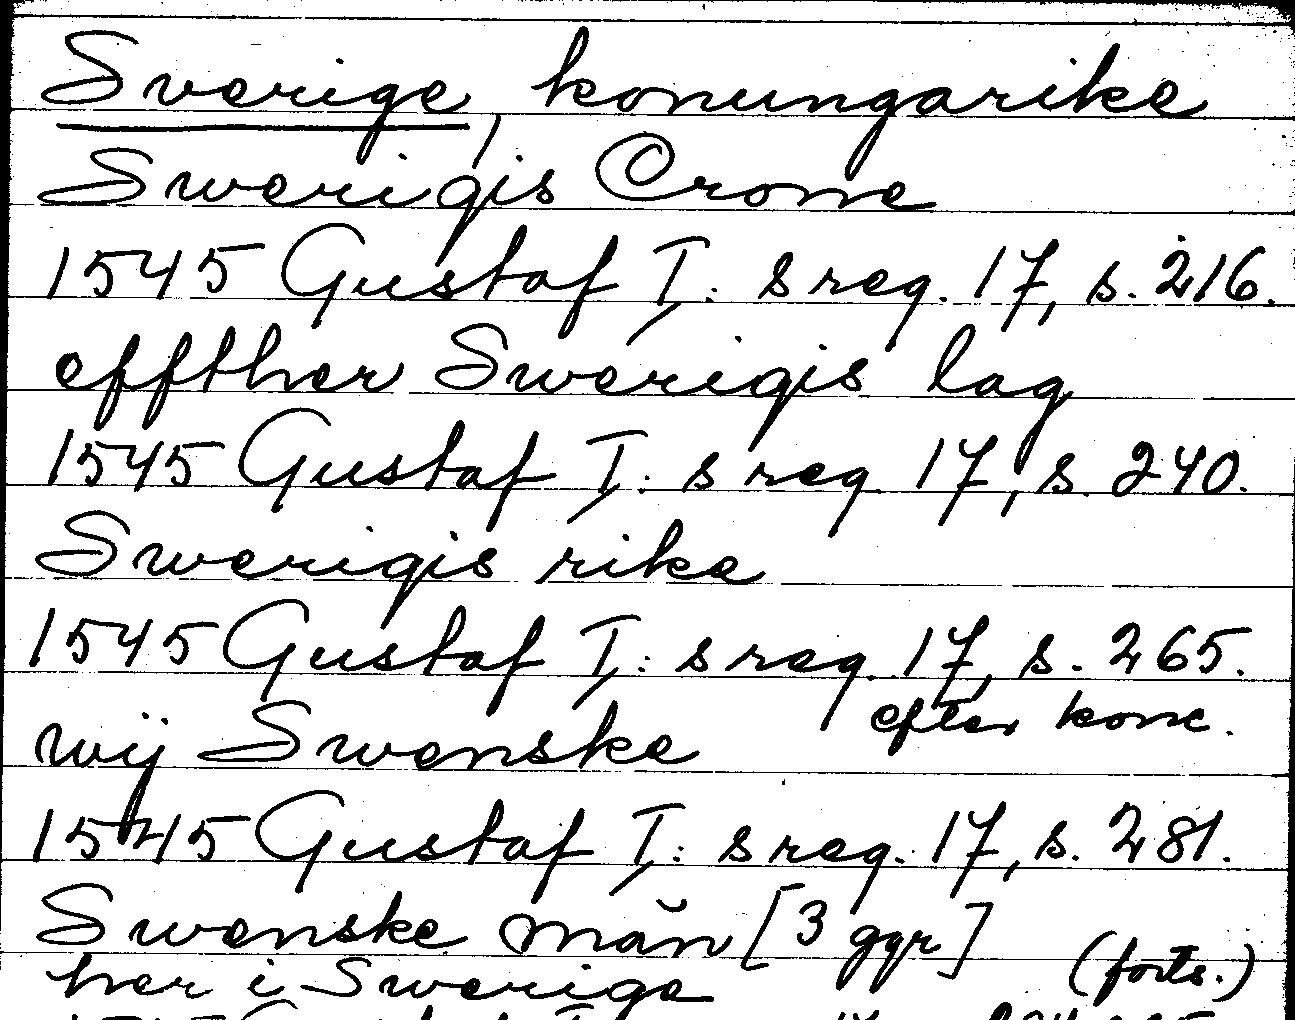 Sverige, konungarike
Swerigis Crone
1545 Gustaf I:s reg. 17, s. 216.
effther Swerigis lag
1545 Gustaf I:s reg. 17, s. 240.
Swerigis rike
1545 Gustaf I:s reg. 17, s. 265.
efter konc.
wij Swenske
1545 Gustaf I:s reg. 17, s. 281.
Swenske män [3 ggr]
her i Swerige (forts.)